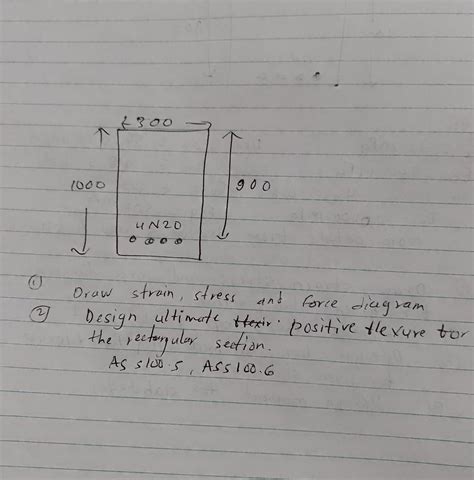 300
1000
900
4N20
① Draw strain, stress and force diagram
② Design ultimate positive flexure for
the rectangular section.
AS 5100.5, AS5100.6